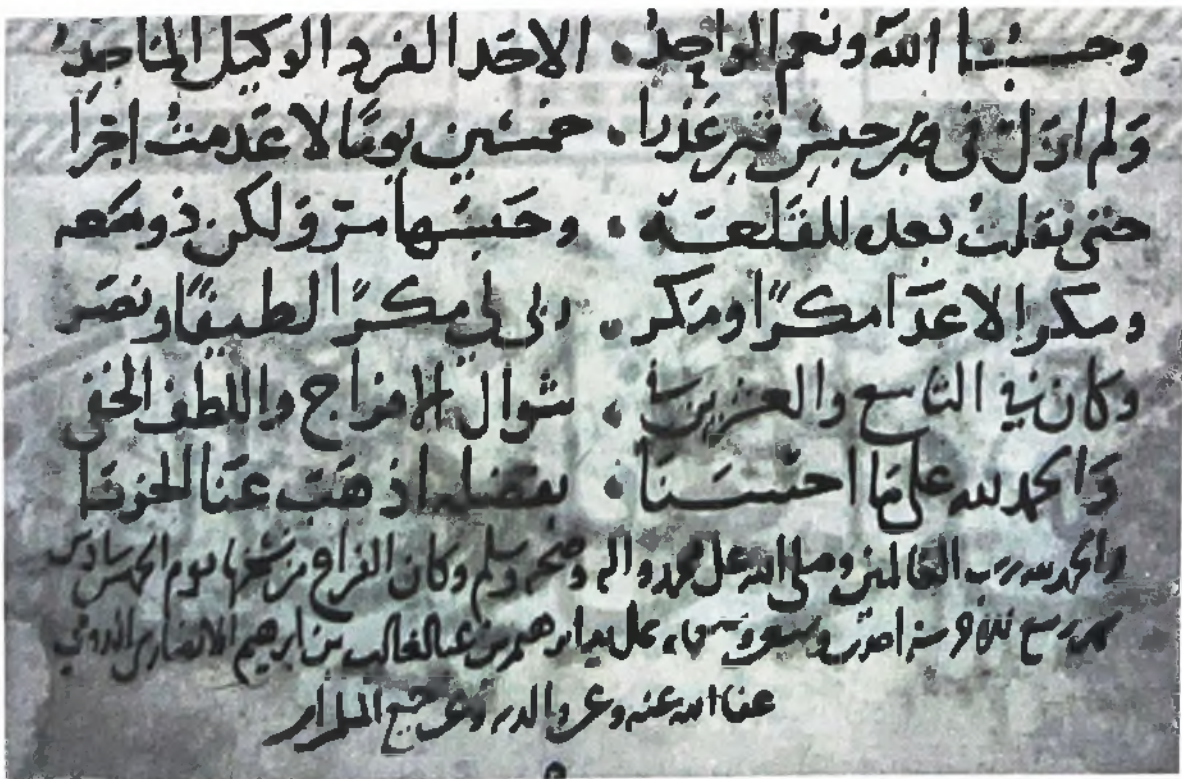 وحسبنا الله ونعم الواجد . الاحد الفرد الوكيل الماجد
ولم ازل في حبس . خمسين يوما لا عدمت اجرا
حتى نقلت بعد للقلعة . وحبسها ولكن ذو
ومكر الاعدا مكرا ومكر . ربي لي مكرا لطيفا ونصر
وكان في التاسع والعشرين . شوال الافراج واللطف الخفي
والحمد لله على ما احسنا . بفضله اذهب عنا الحزنا
والحمد لله رب العالمين وصلى الله على محمد واله وصحبه وسلم وكان الفراغ من نسخها يوم الخميس سادس
سنة على يد ابرهيم بن عبد الغالب بن ابرهيم الانصاري
عفا الله عنه وعن والديه وعن جميع المسلمين